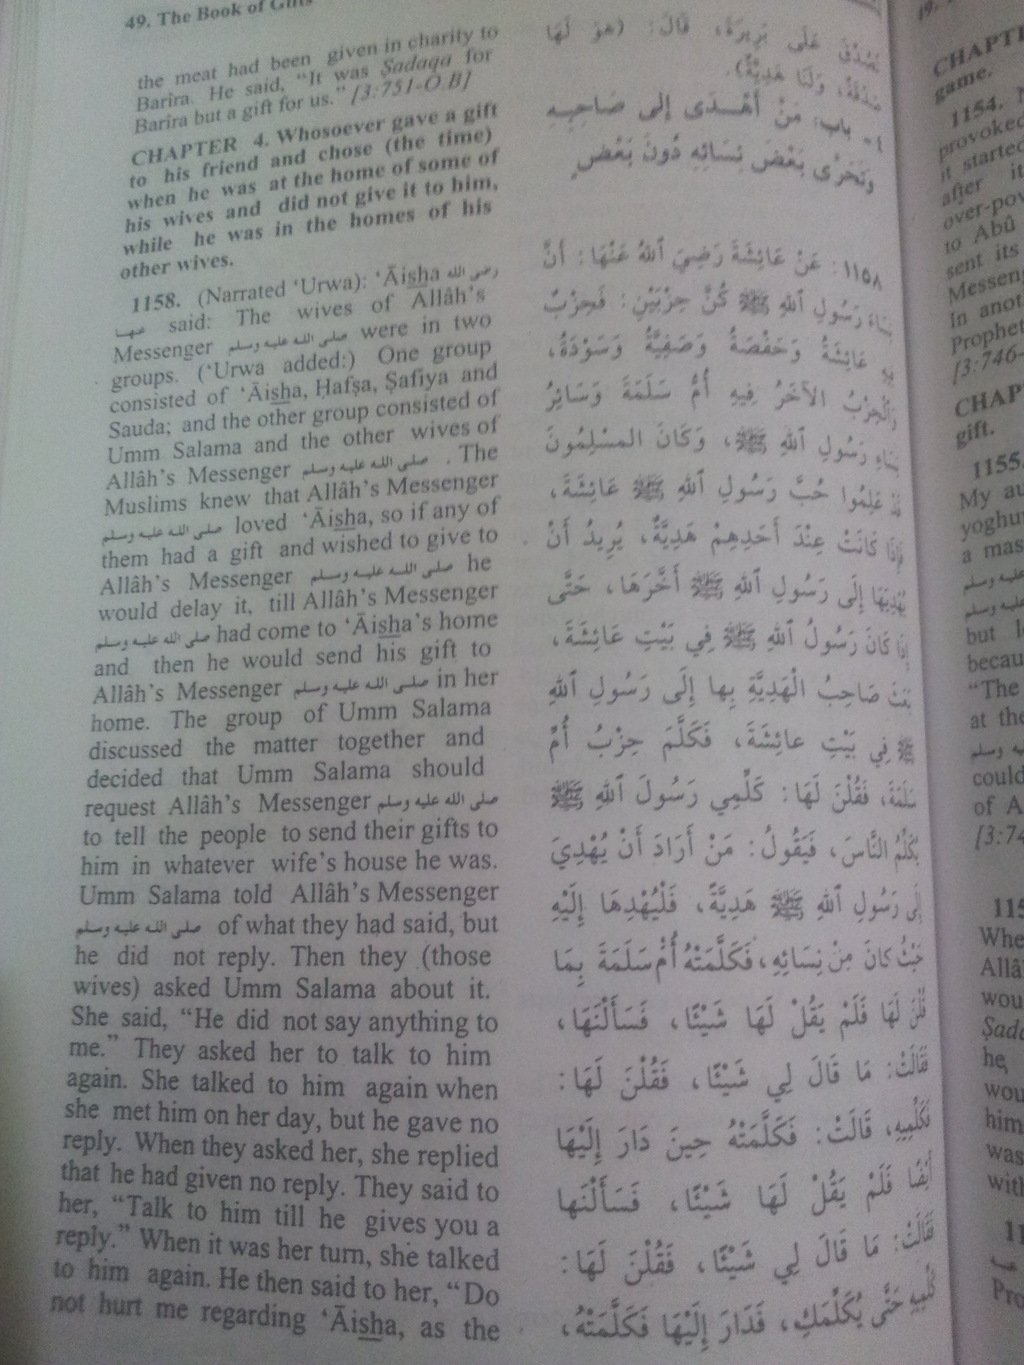 49. The Book of Gifts
the meat had been given in charity to
Barîra. He said, "It was Ṣadaqa for
Barîra but a gift for us." [3:751-O.B]
CHAPTER 4. Whosoever gave a gift
to his friend and chose (the time)
when he was at the home of some of
his wives and did not give it to him,
while he was in the homes of his
other wives.
1158. (Narrated 'Urwa): 'Āisha رضى الله
عنها said: The wives of Allâh's
Messenger صلى الله عليه وسلم were in two
groups. ('Urwa added:) One group
consisted of 'Āisha, Ḥafṣa, Ṣafiya and
Sauda; and the other group consisted of
Umm Salama and the other wives of
Allâh's Messenger صلى الله عليه وسلم . The
Muslims knew that Allâh's Messenger
صلى الله عليه وسلم loved 'Āisha, so if any of
them had a gift and wished to give to
Allâh's Messenger صلى الله عليه وسلم he
would delay it, till Allâh's Messenger
صلى الله عليه وسلم had come to 'Āisha's home
and then he would send his gift to
Allâh's Messenger صلى الله عليه وسلم in her
home. The group of Umm Salama
discussed the matter together and
decided that Umm Salama should
request Allâh's Messenger صلى الله عليه وسلم
to tell the people to send their gifts to
him in whatever wife's house he was.
Umm Salama told Allâh's Messenger
صلى الله عليه وسلم of what they had said, but
he did not reply. Then they (those
wives) asked Umm Salama about it.
She said, "He did not say anything to
me." They asked her to talk to him
again. She talked to him again when
she met him on her day, but he gave no
reply. When they asked her, she replied
that he had given no reply. They said to
her, "Talk to him till he gives you a
reply." When it was her turn, she talked
to him again. He then said to her, "Do
not hurt me regarding 'Āisha, as the
تُصُدِّقَ عَلَى بَرِيرَةَ، قَالَ: (هُوَ لَهَا
صَدَقَةٌ، وَلَنَا هَدِيَّةٌ).
٤ - باب: مَنْ أَهْدَى إِلى صَاحِبِهِ
وَتَحَرَّى بَعْضَ نِسَائِهِ دُونَ بَعْضٍ
١١٥٨ : عَنْ عَائِشَةَ رَضِيَ ٱللهُ عَنْهَا: أَنَّ
نِسَاءَ رَسُولِ ٱللهِ ﷺ كُنَّ حِزْبَيْنِ: فَحِزْبٌ
فِيهِ عَائِشَةُ وَحَفْصَةُ وَصَفِيَّةُ وَسَوْدَةُ،
وَٱلْحِزْبُ الآخَرُ فِيهِ أُمُّ سَلَمَةَ وَسَائِرُ
نِسَاءِ رَسُولِ ٱللهِ ﷺ، وَكَانَ المسْلِمُونَ
قَدْ عَلِمُوا حُبَّ رَسُولِ ٱللهِ ﷺ عَائِشَةَ،
فَإِذَا كَانَتْ عِنْدَ أَحَدِهِمْ هَدِيَّةٌ، يُرِيدُ أَنْ
يُهْدِيَهَا إِلَى رَسُولِ ٱللهِ ﷺ أَخَّرَهَا، حَتَّى
إِذَا كَانَ رَسُولُ ٱللهِ ﷺ فِي بَيْتِ عَائِشَةَ،
بَعَثَ صَاحِبُ الْهَدِيَّةِ بِها إِلَى رَسُولِ ٱللهِ
ﷺ فِي بَيْتِ عائِشَةَ، فَكَلَّمَ حِزْبُ أُمِّ
سَلَمَةَ، فَقُلْنَ لَهَا: كَلِّمِي رَسُولَ ٱللهِ ﷺ
يُكَلِّمُ النَّاسَ، فَيَقُولُ: مَنْ أَرَادَ أَنْ يُهْدِيَ
إِلَى رَسُولِ ٱللهِ ﷺ هَدِيَّةً، فَلْيُهْدِهَا إِلَيْهِ
حَيْثُ كانَ مِنْ نِسَائِهِ، فَكَلَّمَتْهُ أُمُّ سَلَمَةَ بِمَا
قُلْنَ لَهَا فَلَمْ يَقُلْ لَهَا شَيْئًا، فَسَأَلْنَهَا،
فَقَالَتْ: مَا قَالَ لِي شَيْئًا، فَقُلْنَ لَهَا:
فَكَلِّمِيهِ، قَالَتْ: فَكَلَّمَتْهُ حِينَ دَارَ إِلَيْهَا
أَيْضًا فَلَمْ يَقُلْ لَهَا شَيْئًا، فَسَأَلْنَها
فَقَالَتْ: مَا قَالَ لِي شَيْئًا، فَقُلْنَ لَهَا:
كَلِّمِيهِ حَتَّى يُكَلِّمَكِ، فَدَارَ إِلَيْهَا فَكَلَّمَتْهُ،
game.
1154.
provoked
it started
after it
to Abû
sent its
Messeng
In anot
Prophet
[3:746-
gift.
1155.
My au
yoghu
a mas
عليه وسلم
عليه وسلم
but
becau
"The
at the
عليه وسلم
could
of A
[3:74
Whe
Allâ
wou
Ṣada
he,
wou
him
was
with
Pro